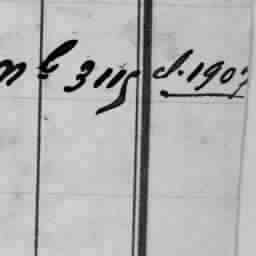 nl 3115 d. 1907